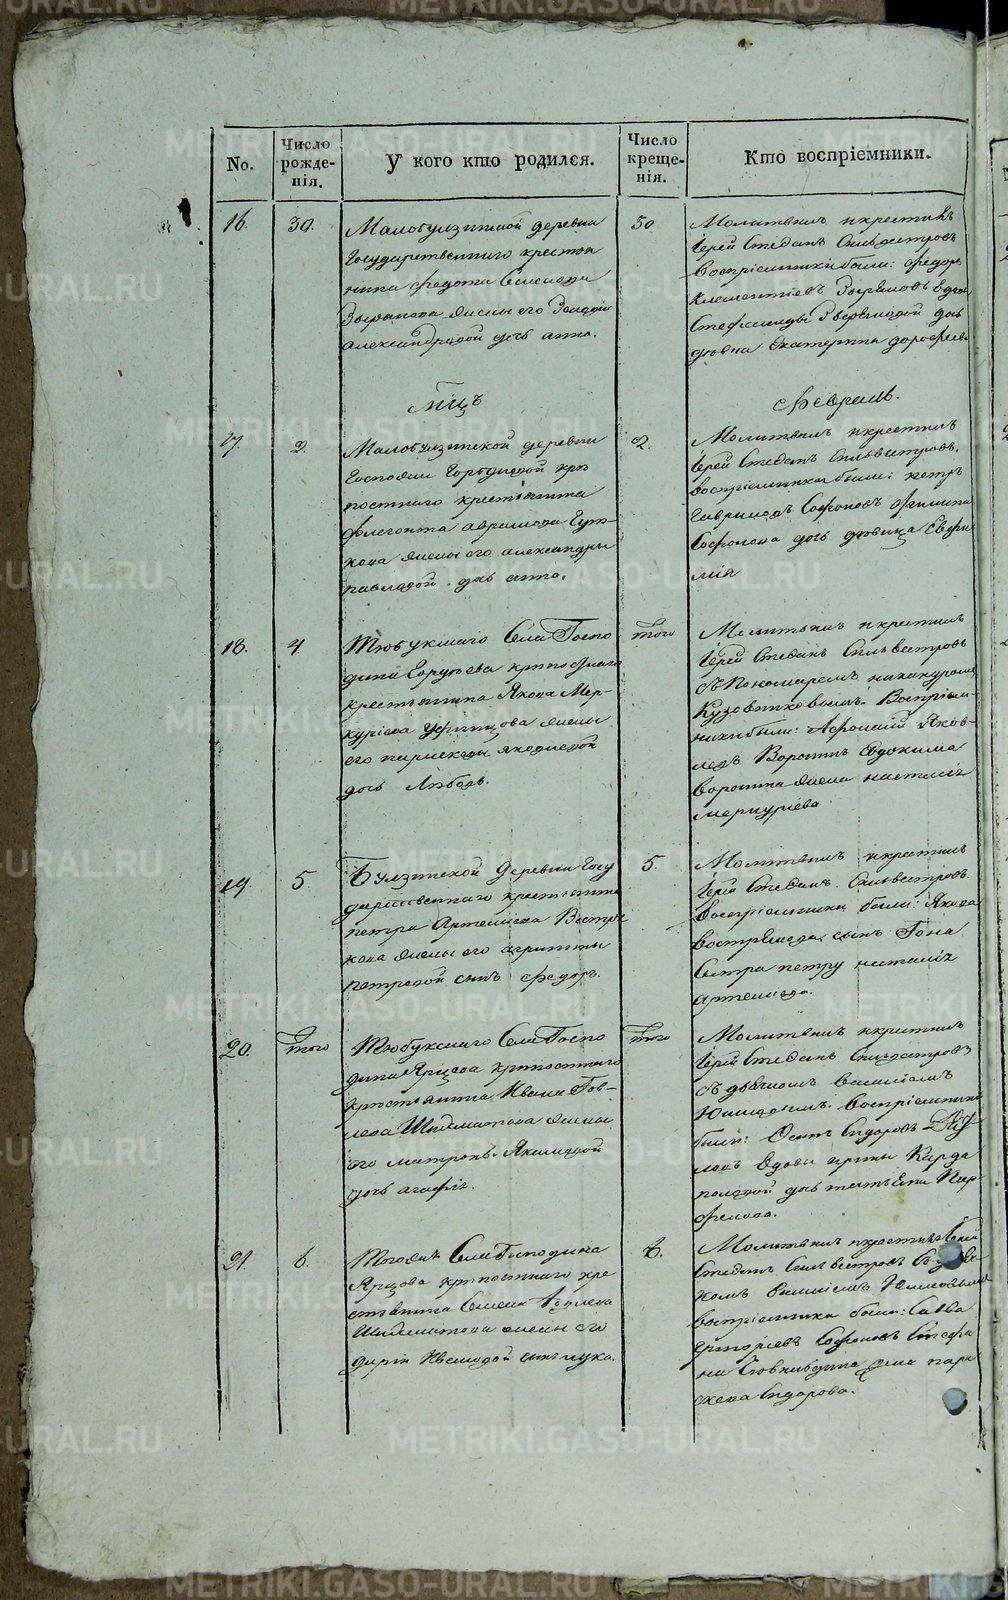 METRIKI.GASO-URAL.RU
No.
Число рожде-нія.
У кого кто родился.
Число креще-нія.
Кто воспріемники.
16.
30.
Малобулзинской деревни
Государственнаго крестья
нина Федота Семенова
Зырянова жены его
Александровой дочь Анна.
30
Молитвилъ и крестилъ
Іерей Стефанъ Сильвестровъ
Воспріемники были: Федоръ
Клементіевъ Зыряновъ вдовы
дочь
Екатерина
мцъ
Февраль.
17.
2.
Малобулзинской деревни
Госпожи крѣ
постнаго крестьянина
Флегонта Аврамова
кова жены его Александры
Павловой дочь Анна.
2.
Молитвилъ и крестилъ
Іерей Стефанъ Сильвестровъ.
воспріемники были: петръ
Гавриловъ Сафоновъ Филипа
Сафонова дочь дѣвица Евфи
мія
18.
4.
Тюбукскаго Села Госпо
дина крѣпостнаго
крестьянина Якова Мер-
куріева жены
его параскевы Яковлевой
дочь Любовь.
того
Молитвилъ и крестилъ
Іерей Стефанъ Сильвестровъ
съ Пономаремъ никандромъ
Кузовниковымъ. Воспріем-
ники были: Афонасій Яков-
левъ Воронинъ Евдокима
Воронина жена настасія
меркуріева
19.
5.
Булзинской Деревни Госу
дарственнаго крестьянина
петра Артемьева Востря
кова жены его агрипины
петровой сынъ Федоръ.
5.
Молитвилъ и крестилъ
Іерей Стефанъ Сильвестровъ.
Воспріемники были: Якова
Вострякова сынъ
Сестра петру наталія
артемьева.
20.
того
Тюбукскаго Села Госпо
дина Ярцова крѣпостнаго
крестьянина Ивана Іов-
лева Шаламатова жены
его матроны Якимовой
дочь агафія.
того
Молитвилъ и крестилъ
Іерей Стефанъ Сильвестровъ
съ дьячкомъ Василіемъ
Воспріемники
были: Осипъ Сидоровъ
вдовы ирины Карда
половой дочь татьяна Пар
фенова.
21.
6.
Тогожъ Села Господина
Ярцова крѣпостнаго кре
стьянина Семена Іовлева
Шаламатова жены его
дарьи Ивановой сынъ лука.
6.
Молитвилъ и крестилъ Іерей
Стефанъ Сильвестровъ съ дьяч
комъ Василіемъ
воспріемники были: Савва
григорьевъ Сафоновъ Стефа
на жена пара
скева Сидорова.